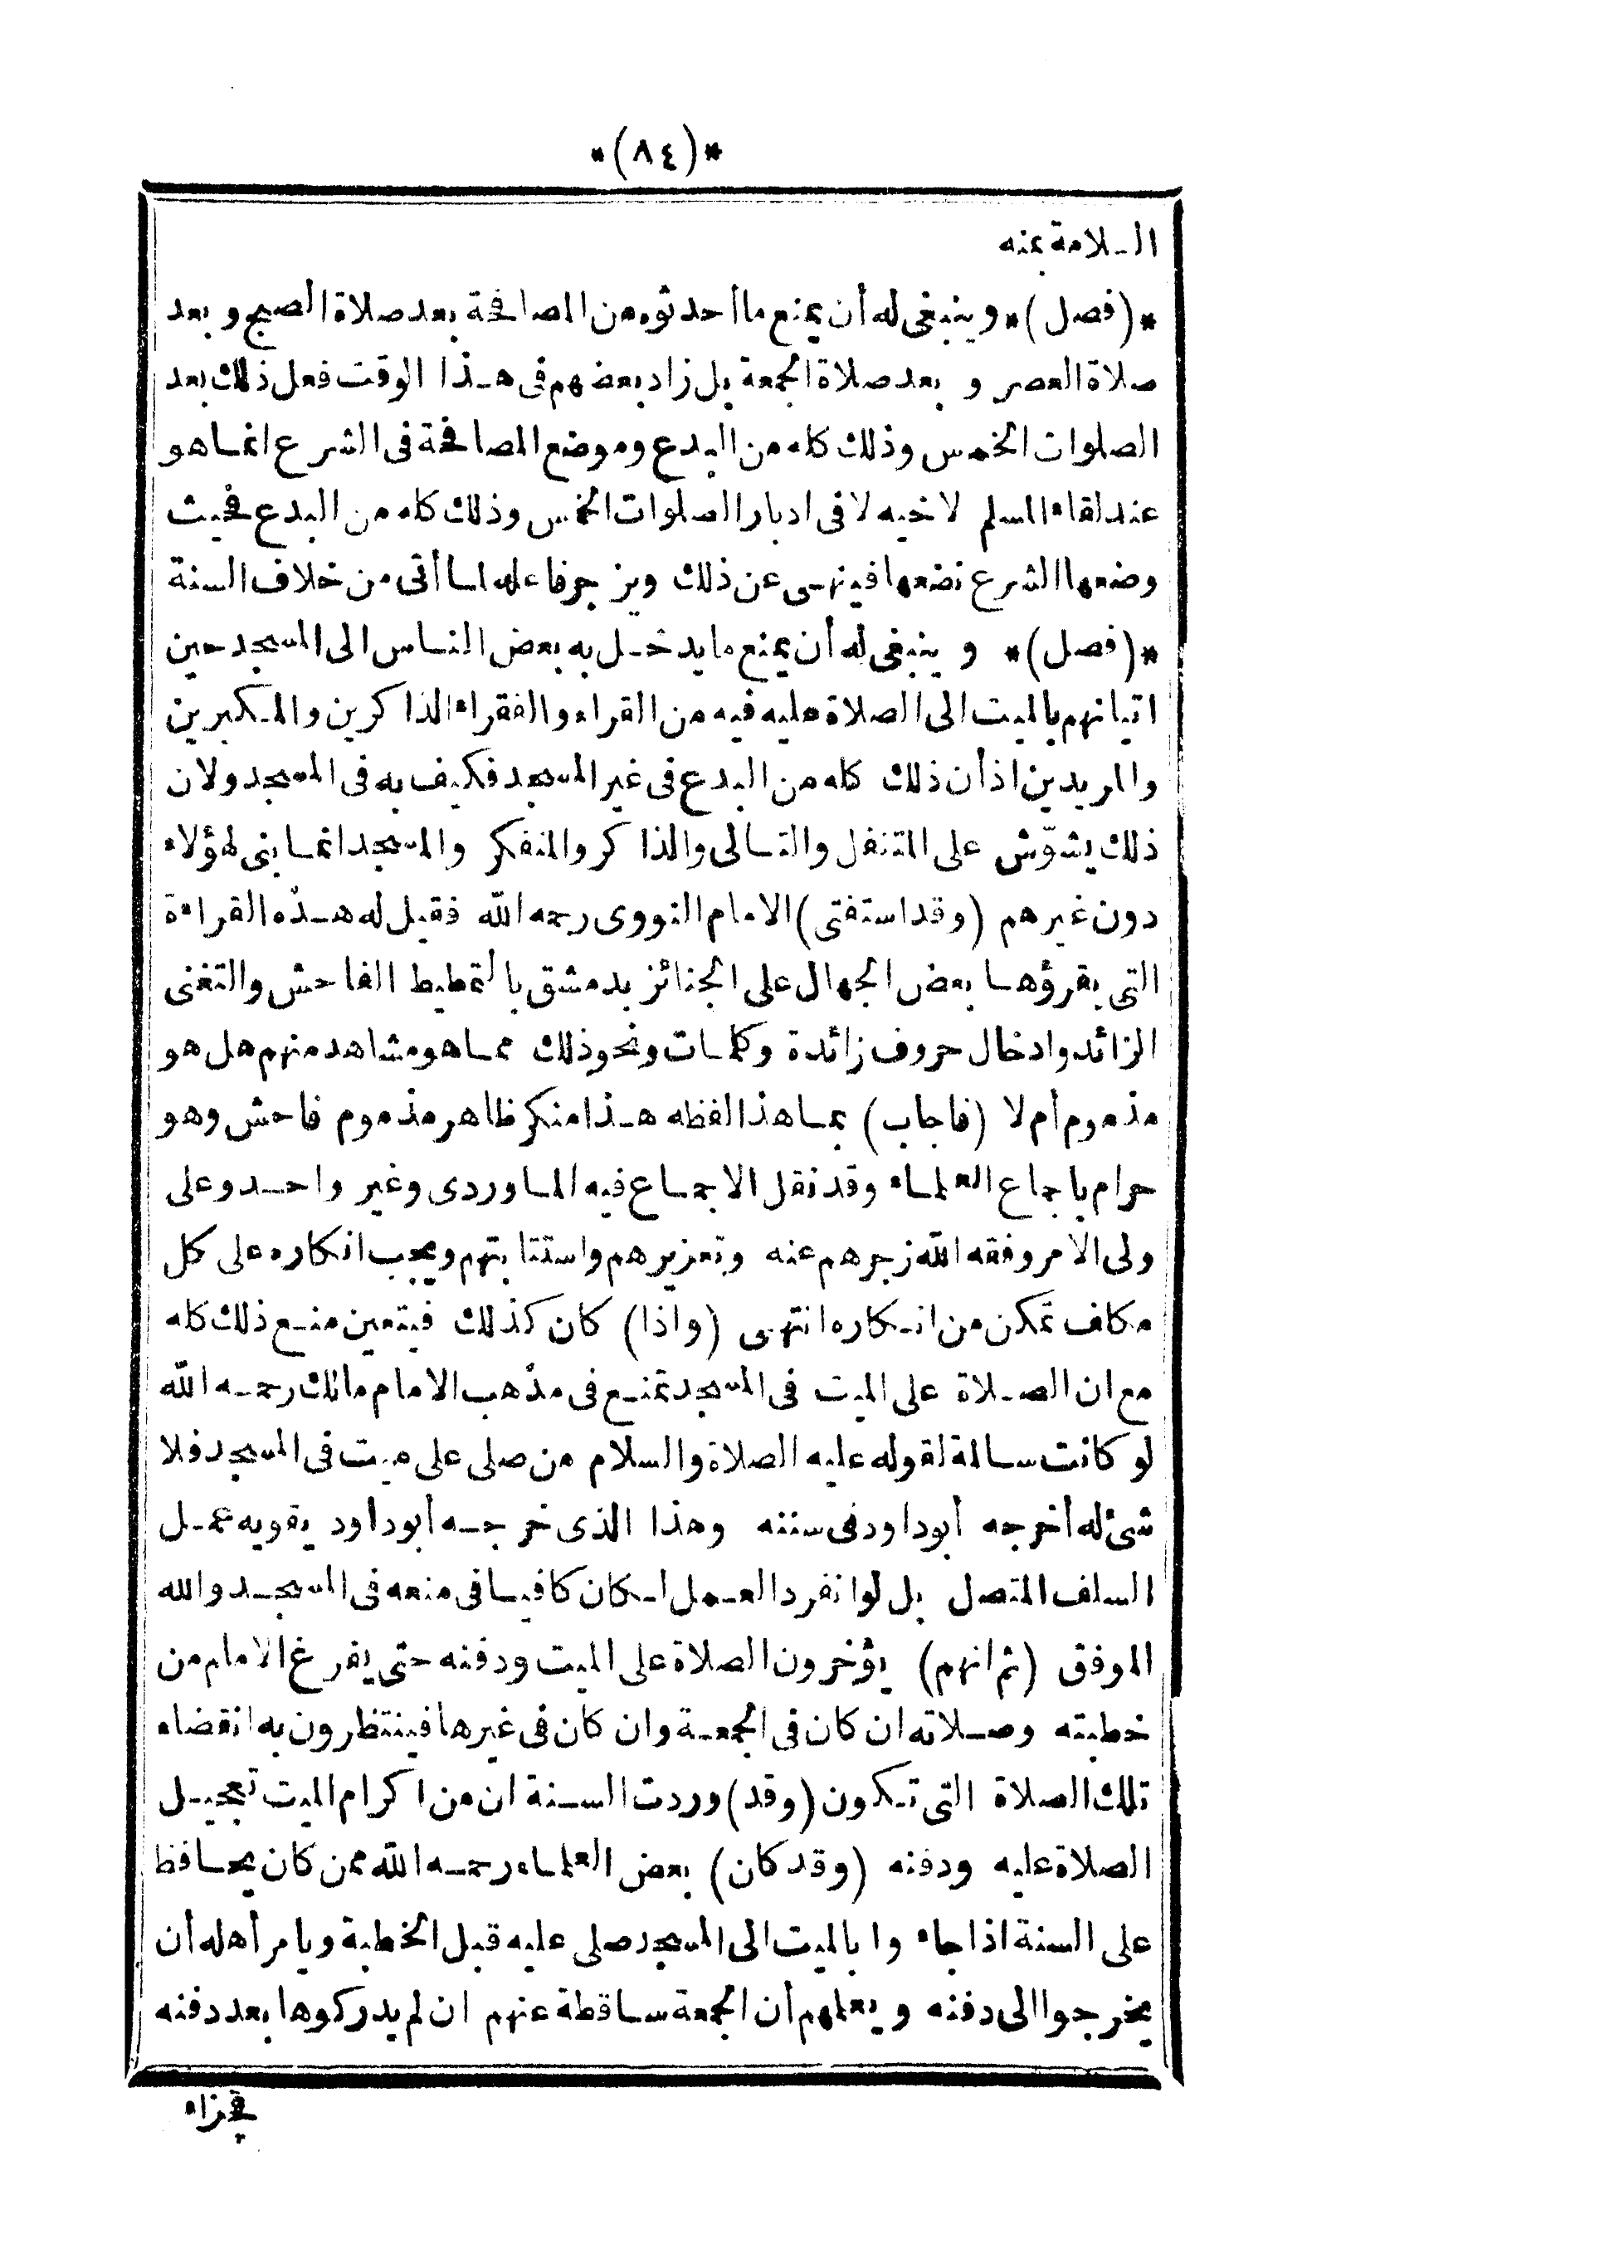 *(٨٤)*
السلامة بمنه
*(فصل)* وينبغى له أن يمنع ما أحدثوه من المصافحة بعد صلاة الصبح وبعد
صلاة العصر وبعد صلاة الجمعة بل زاد بعضهم فى هذا الوقت فعل ذلك بعد
الصلوات الخمس وذلك كله من البدع وموضع المصافحة فى الشرع انما هو
عند لقاء المسلم لاخيه لا فى ادبار الصلوات الخمس وذلك كله من البدع فحيث
وضعها الشرع نضعها فينهى عن ذلك ويزجر فاعله لما أتى من خلاف السنة
*(فصل)* وينبغى له أن يمنع ما يدخل به بعض الناس الى المسجد حين
اتيانهم بالميت الى الصلاة عليه فيه من القراء والفقراء الذاكرين والمكبرين
والمريدين اذ أن ذلك كله من البدع فى غير المسجد فكيف به فى المسجد ولان
ذلك يشوّش على المتنفل والتالى والذاكر والمتفكر والمسجد انما بنى لهؤلاء
دون غيرهم (وقد استفتى) الامام النووى رحمه الله فقيل له هذه القراءة
التى يقرؤها بعض الجهال على الجنائز بدمشق بالتمطيط الفاحش والتغنى
الزائد وادخال حروف زائدة وكلمات ونحو ذلك مما هو مشاهد منهم هل هو
مذموم أم لا (فاجاب) بما هذا لفظه هذا منكر ظاهر مذموم فاحش وهو
حرام باجماع العلماء وقد نقل الاجماع فيه الماوردى وغير واحد وعلى
ولى الامر وفقه الله زجرهم عنه وتعزيرهم واستتابتهم ويجب انكاره على كل
مكلف تمكن من انكاره انتهى (واذا) كان كذلك فيتعين منع ذلك كله
مع ان الصلاة على الميت فى المسجد تمنع فى مذهب الامام مالك رحمه الله
لو كانت سالمة لقوله عليه الصلاة والسلام من صلى على ميت فى المسجد فلا
شئ له أخرجه أبوداود فى سننه وهذا الذى خرجه أبوداود يقويه عمل
السلف المتصل بل لو انفرد العمل لكان كافيا فى منعه فى المسجد والله
الموفق (ثم انهم) يؤخرون الصلاة على الميت ودفنه حتى يفرغ الامام من
خطبته وصلاته ان كان فى الجمعة وان كان فى غيرها فينتظرون به انقضاء
تلك الصلاة التى تكون (وقد) وردت السنة ان من اكرام الميت تعجيل
الصلاة عليه ودفنه (وقد كان) بعض العلماء رحمه الله ممن كان يحافظ
على السنة اذا جاء وا بالميت الى المسجد صلى عليه قبل الخطبة ويأمر أهله أن
يخرجوا الى دفنه ويعلمهم أن الجمعة ساقطة عنهم ان لم يدركوها بعد دفنه
فجزاء